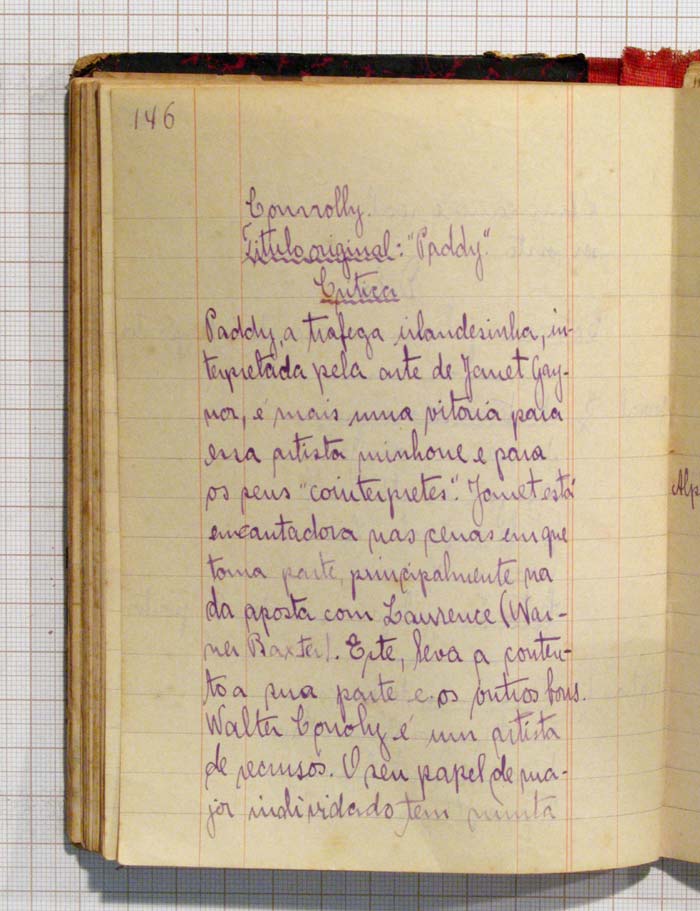 146
Connolly.
Titulo original: "Paddy".
Critica
Paddy, a trafega irlandesinha, in-
terpretada pela arte de Janet Gay-
nor, é mais uma vitoria para
essa artista mignone e para
os seus "cointerpretes". Janet está
encantadora nas cenas em que
toma parte, principalmente na
da aposta com Laurence (War-
ner Baxter). Este, leva a conten-
to a sua parte e os outros bons.
Walter Conoly é um artista
de recursos. O seu papel de ma-
jor individado tem muita
Alp